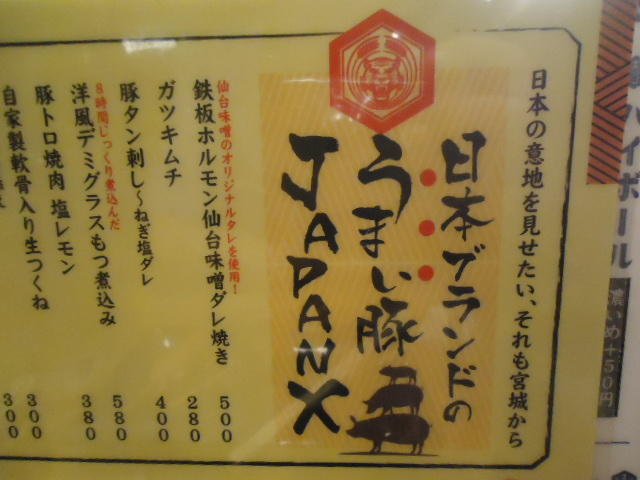 ハイボール
濃いめ+50円
日本の意地を見せたい、それも宮城から
日本ブランドの
うまい豚
JAPAN X
仙台味噌のオリジナルタレを使用！
鉄板ホルモン仙台味噌ダレ焼き 500
ガツキムチ 280
豚タン刺し〜ねぎ塩ダレ 400
8時間じっくり煮込んだ
洋風デミグラスもつ煮込み 580
豚トロ焼肉 塩レモン 380
自家製軟骨入り生つくね 300
300